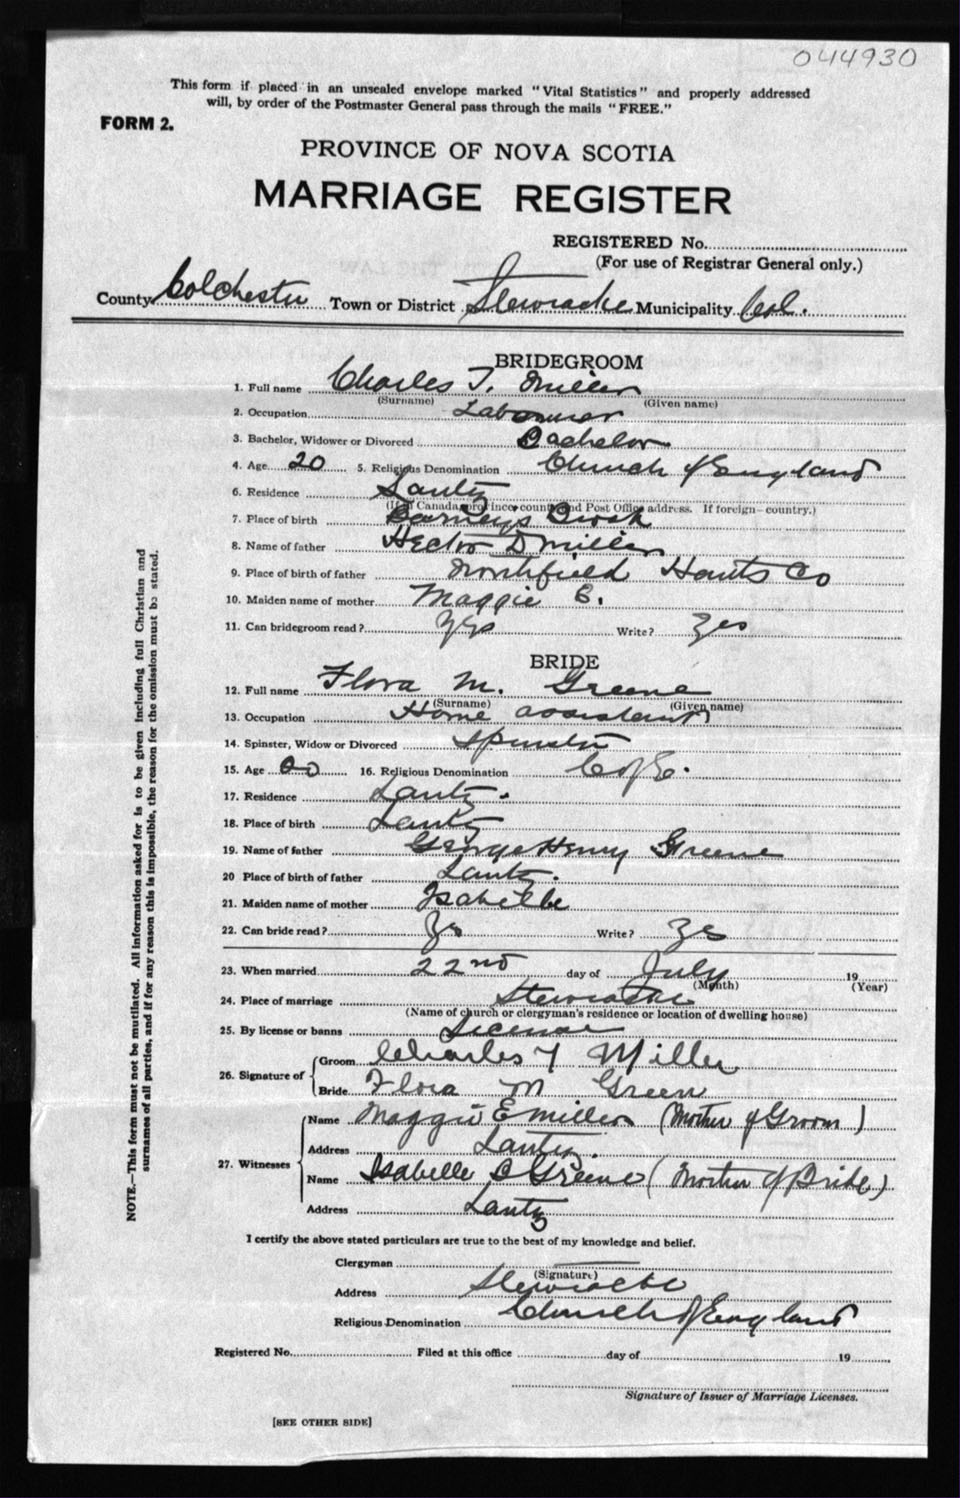 044930
This form if placed in an unsealed envelope marked "Vital Statistics" and properly addressed
will, by order of the Postmaster General pass through the mails "FREE."
FORM 2.
PROVINCE OF NOVA SCOTIA
MARRIAGE REGISTER
REGISTERED No.
(For use of Registrar General only.)
County Colchester Town or District Stewiacke Municipality Col.
BRIDEGROOM
1. Full name Charles T. Miller
(Surname) (Given name)
2. Occupation Labourer
3. Bachelor, Widower or Divorced Bachelor
4. Age 20 5. Religious Denomination Church of England
6. Residence Lantz
(If in Canada, province, county and Post Office address. If foreign—country.)
7. Place of birth Barneys Brook
8. Name of father Hector D Miller
9. Place of birth of father Northfield Hants Co
10. Maiden name of mother Maggie E.
11. Can bridegroom read? Yes Write? Yes
BRIDE
12. Full name Flora M. Greene
(Surname) (Given name)
13. Occupation Home assistant
14. Spinster, Widow or Divorced Spinster
15. Age 16. Religious Denomination C of E.
17. Residence Lantz.
18. Place of birth Lantz
19. Name of father George Henry Greene
20 Place of birth of father Lantz.
21. Maiden name of mother Isabelle
22. Can bride read? Yes Write? Yes
23. When married 22nd day of July 19
(Month) (Year)
24. Place of marriage Stewiacke
(Name of church or clergyman's residence or location of dwelling house)
25. By license or banns License
26. Signature of Groom Charles T Miller
Bride Flora M Green
27. Witnesses Name Maggie E Miller (Mother of Groom)
Address Lantz.
Name Isabelle B Greene (Mother of Bride)
Address Lantz
I certify the above stated particulars are true to the best of my knowledge and belief.
Clergyman
(Signature)
Address Stewiacke
Religious Denomination Church of England
Registered No. Filed at this office day of 19
Signature of Issuer of Marriage Licenses.
[SEE OTHER SIDE]
NOTE.—This form must not be mutilated. All information asked for is to be given including full Christian and
surnames of all parties, and if for any reason this is impossible, the reason for the omission must be stated.